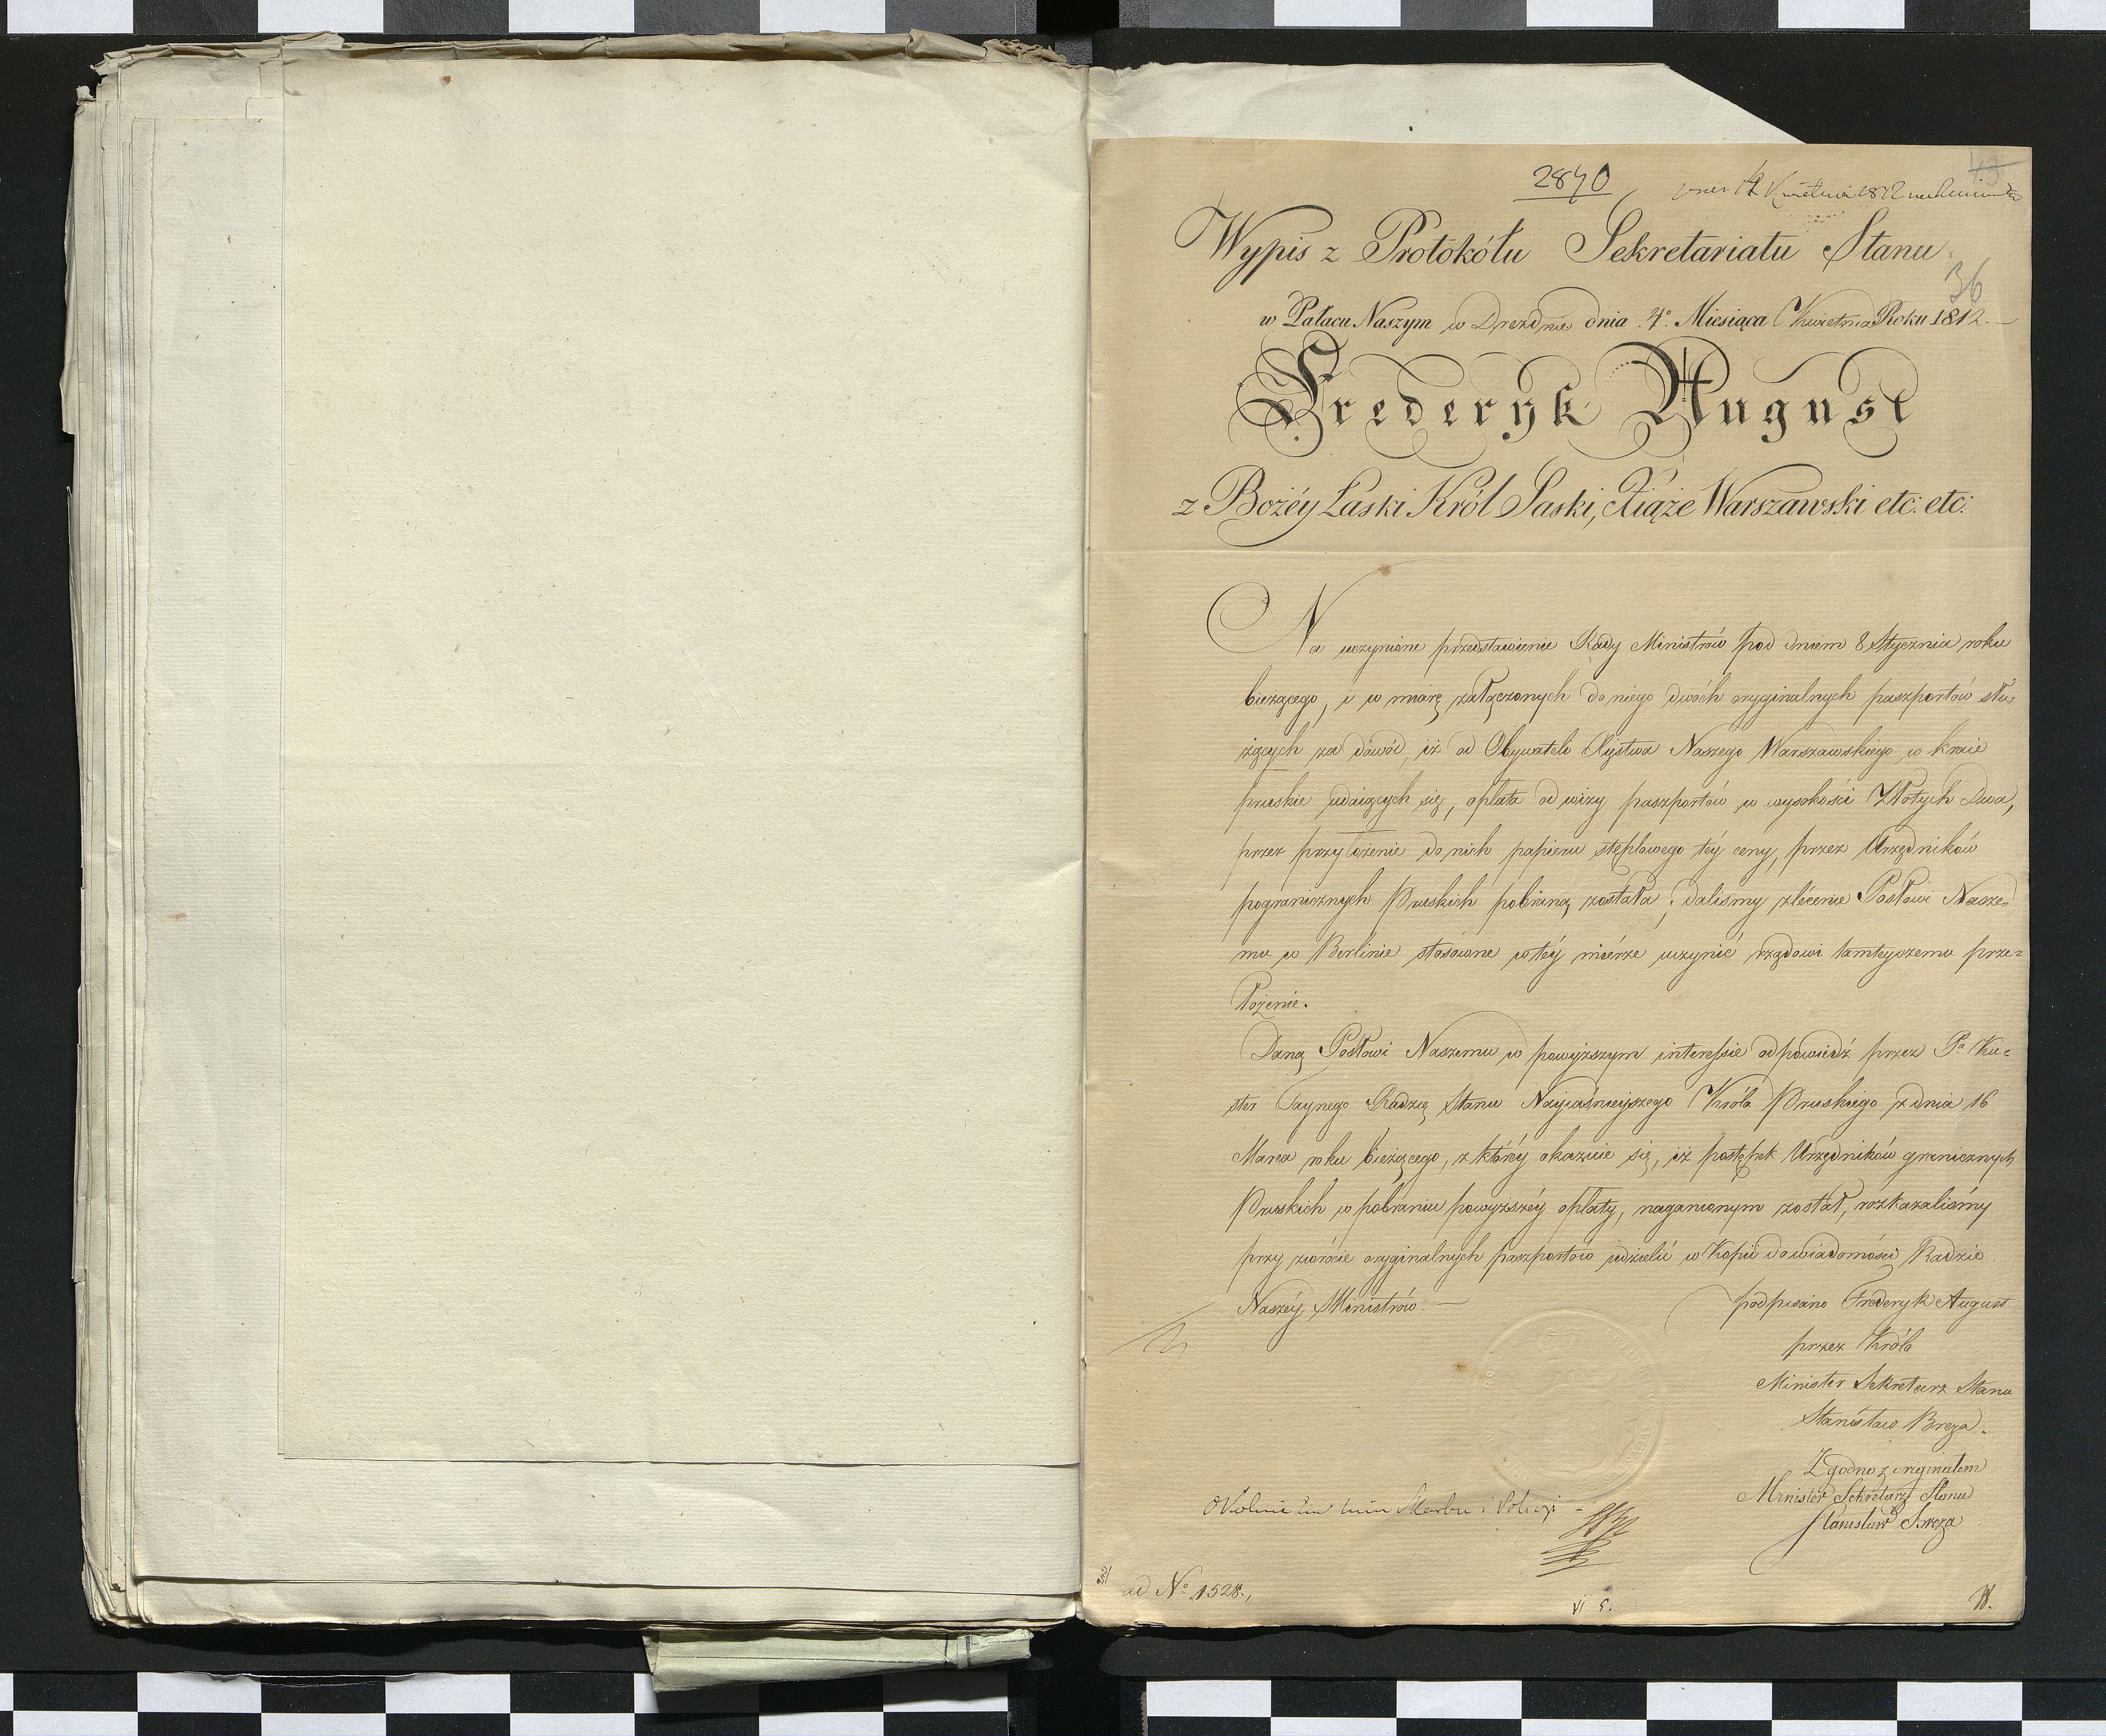 2840
43
Wypis z Protokółu Sekretariatu Stanu
36
w Pałacu Naszym w Dreznie dnia 4º Miesiąca Kwietnia Roku 1812.
Frederyk August
z Bożéy Łaski Król Saski, Xiąże Warszawski etc: etc:
Na uczynione przedstawienie Rady Ministrów pod dniem 8 Stycznia roku
bieżącego, i w miarę załączonych do niego dwóch oryginalnych paszportów słu-
żących za dowód, iż od Obywateli Xięstwa Naszego Warszawskiego w kraie
pruskie udaiących się, opłata od wizy paszportów w wysokości Złotych Dwa,
przez przyłożenie do nich papieru stęplowego téy ceny, przez Urzędników
pogranicznych Pruskich pobraną została; daliśmy zlécenie Posłowi Nasze-
mu w Berlinie stósowne w téy miérze uczynić rządowi tamteyszemu prze=
łożenie.
Daną Posłowi Naszemu w powyższym interessie odpowiedź przez Pª Ku=
ster Taynego Radzcę Stanu Nayiaśnieyszego Króla Pruskiego z dnia 16
Marca roku bieżącego, z któréy okazuie się, iż postępek Urzędników granicznych
Pruskich w pobraniu powyższéy opłaty, naganionym został, rozkazaliśmy
przy zwrócie oryginalnych paszportów udzielić w Kopii do wiadomości Radzie
Naszéy Ministrów.
podpisano Frederyk August
przez Króla
Minister Sekretarz Stanu
Stanisław Breza.
Zgodno z originałem
Minister Sekretarz Stanu
Stanisław Breza
Skarbu i Policyi
ad Nº 1528.,
VI 5.